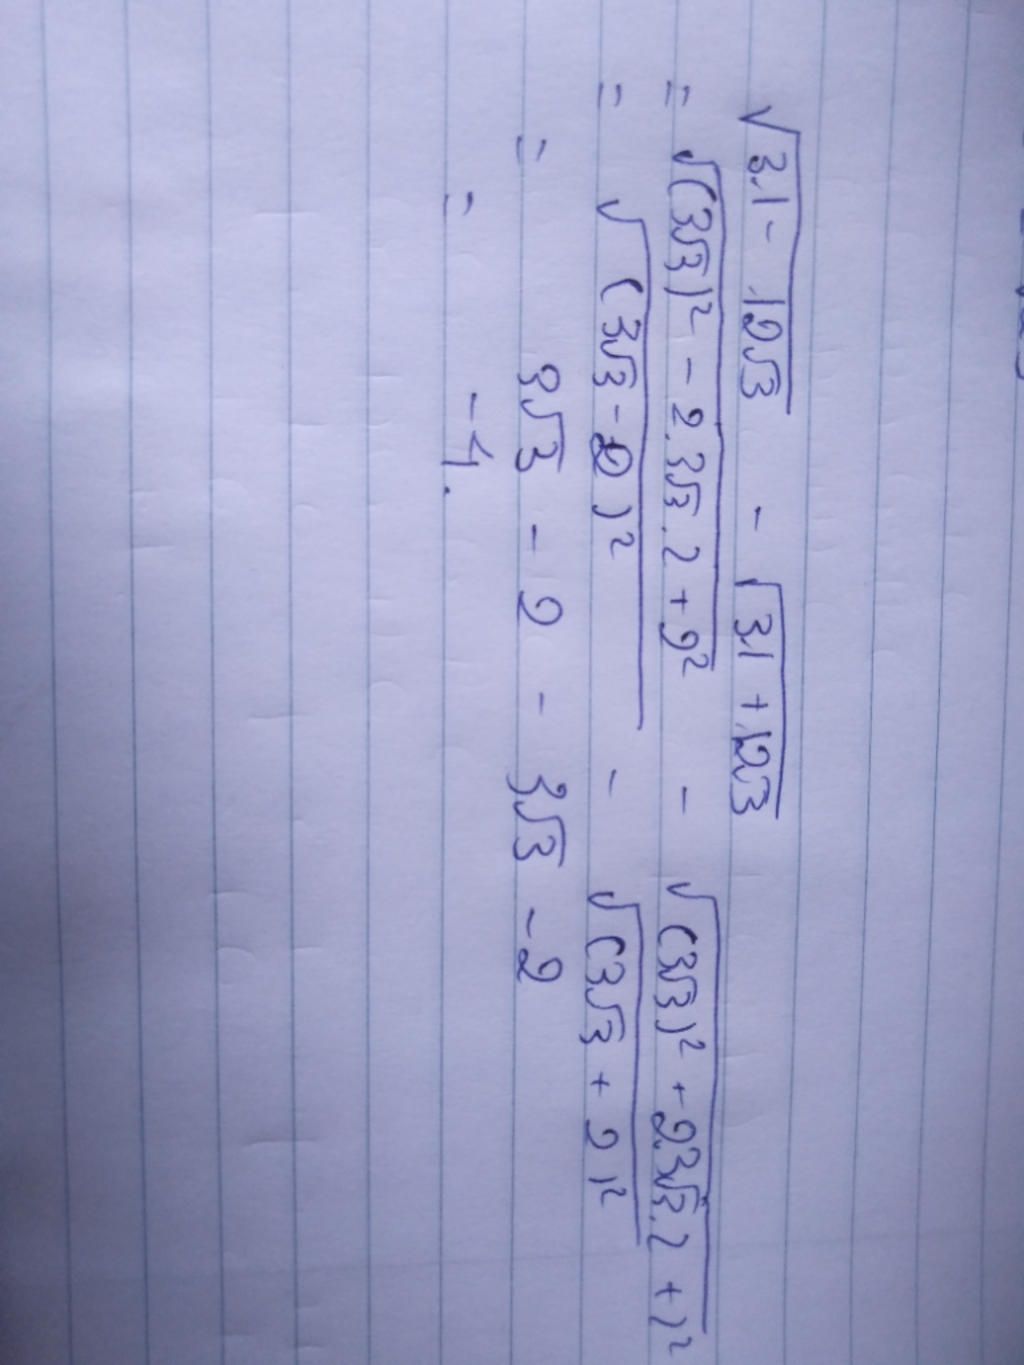 √31 - 12√3 - √31 + 12√3
= √(3√3)² - 2.3√3.2 + 2² - √(3√3)² + 2.3√3.2 + 2²
= √(3√3 - 2)² - √(3√3 + 2)²
= 3√3 - 2 - 3√3 - 2
= -4.